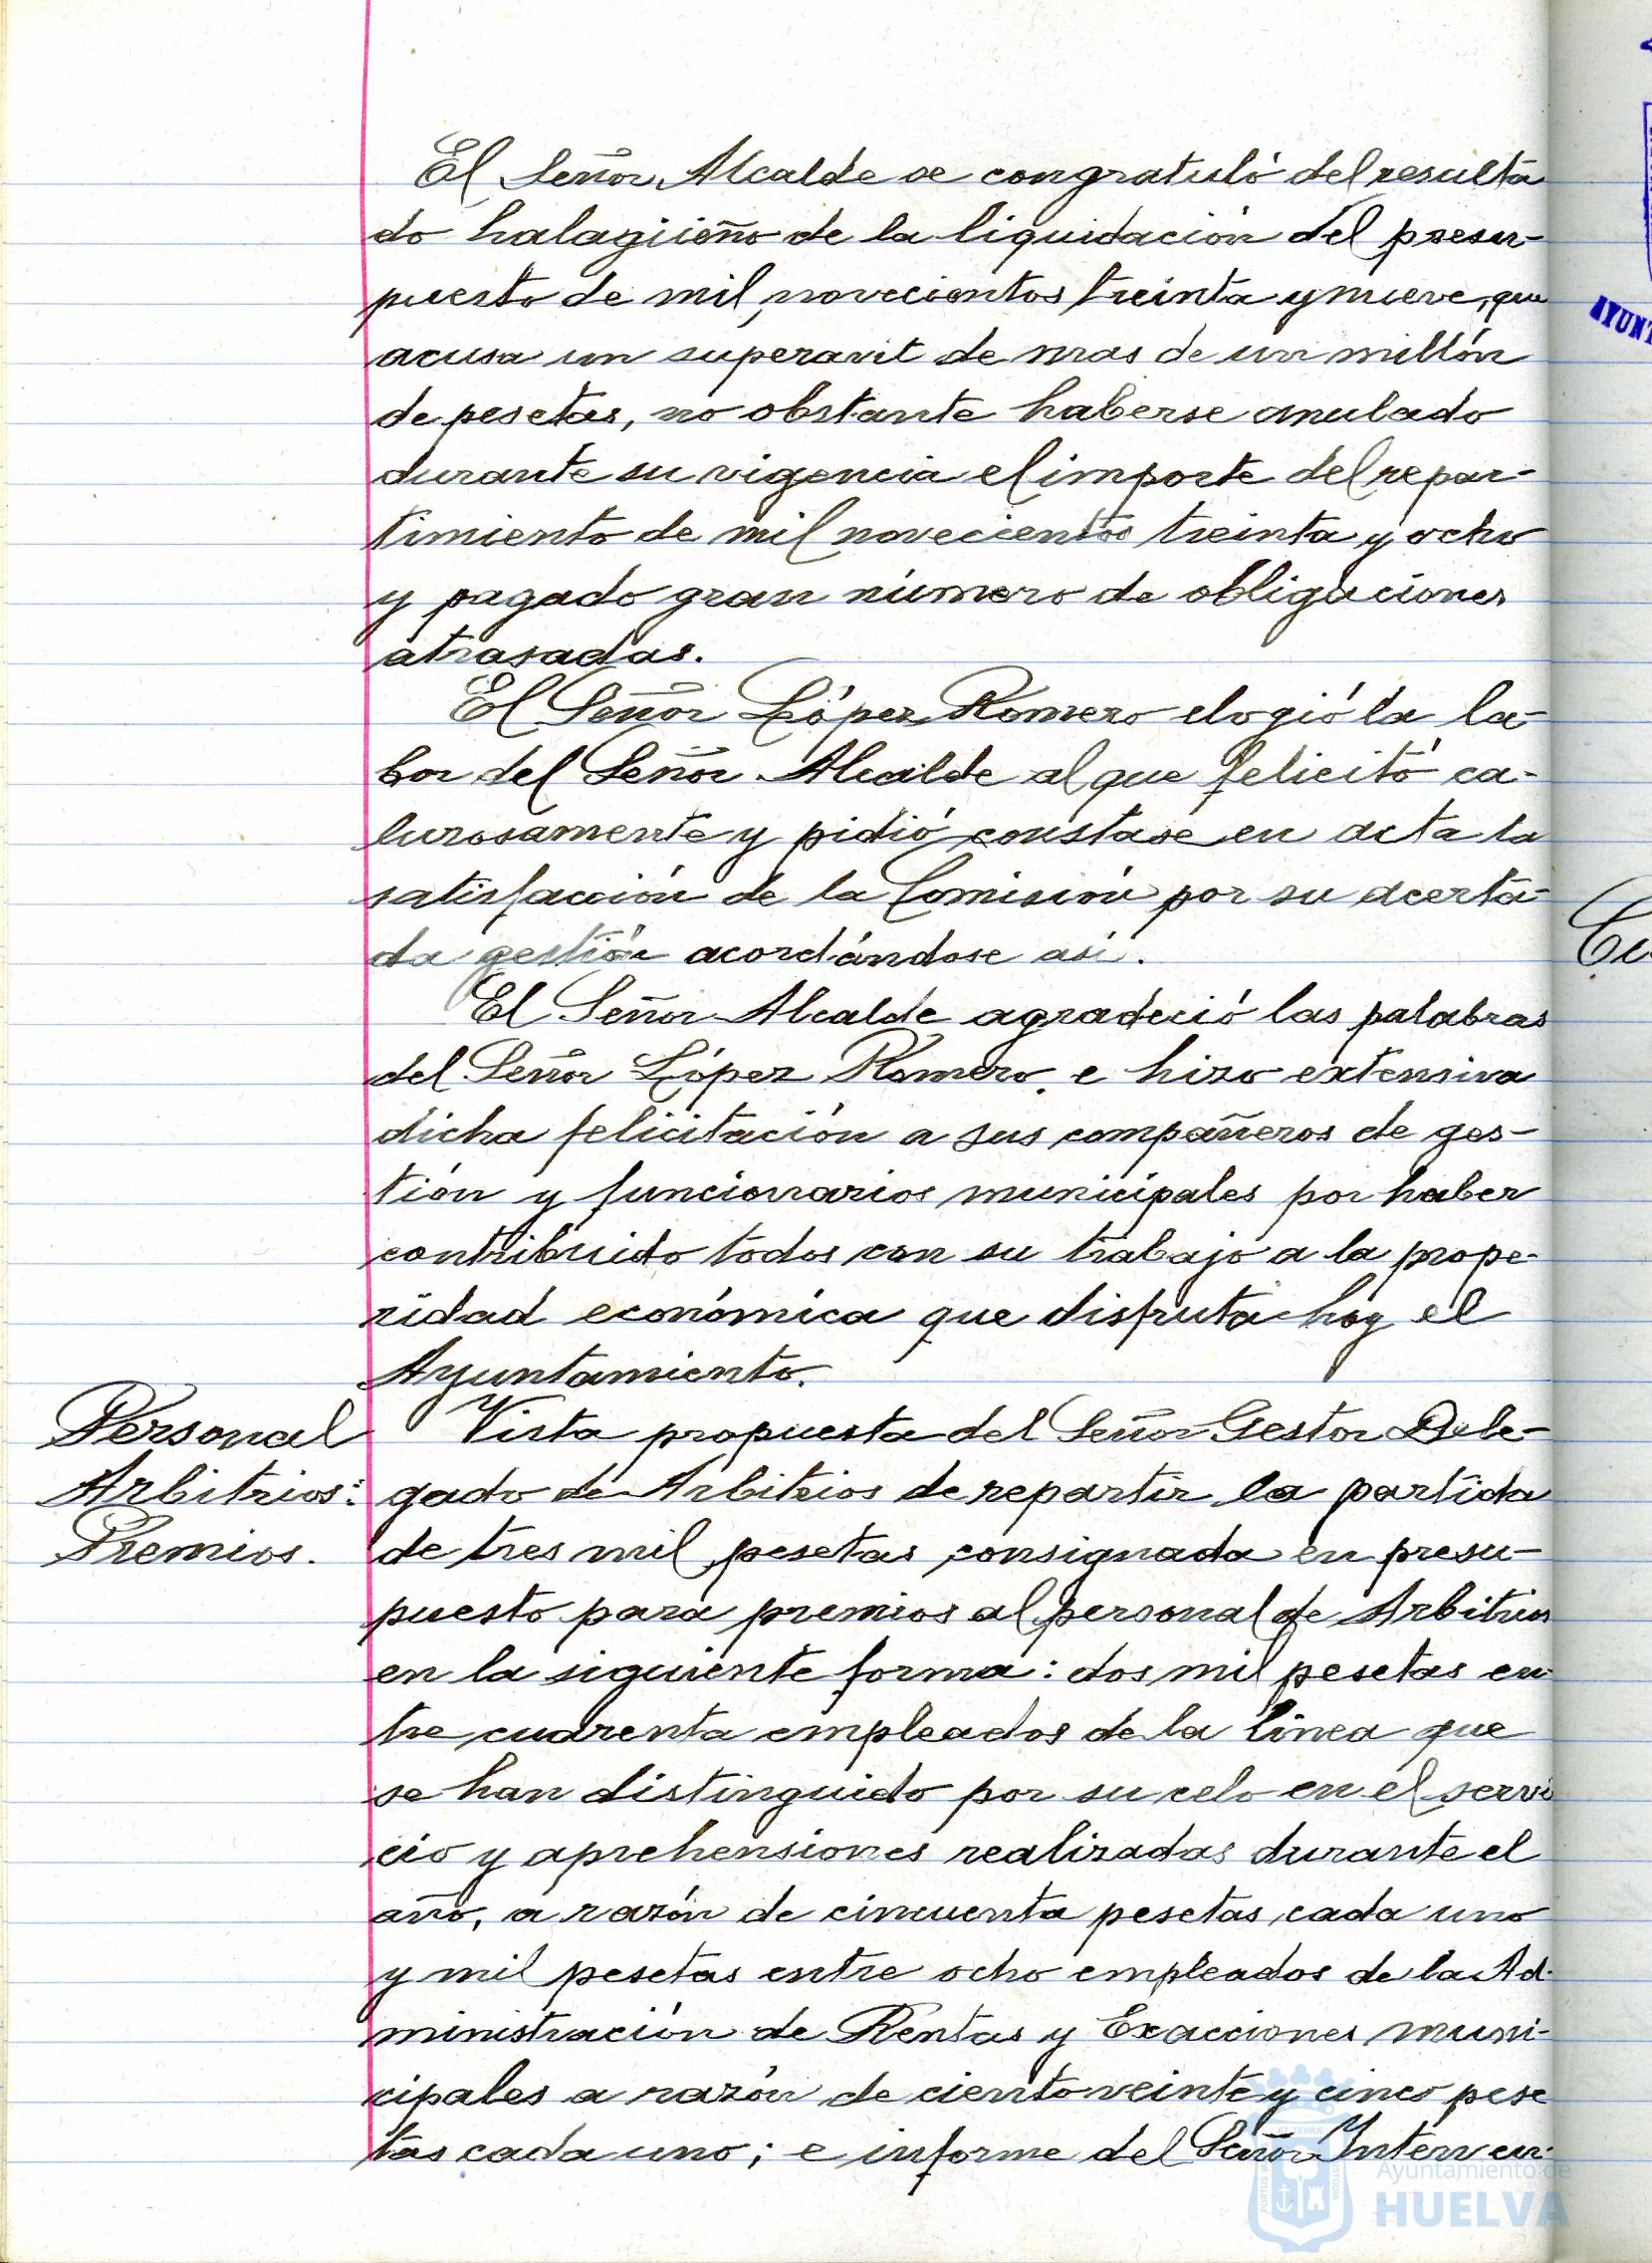 El Señor Alcalde se congratuló del resulta
do halagüeño de la liquidación del presu-
puesto de mil, novecientos treinta y nueve, que
acusa un superavit de mas de un millón
de pesetas, no obstante haberse anulado
durante su vigencia el importe del repar-
timiento de mil novecientos treinta y ocho
y pagado gran número de obligaciones
atrasadas.
El Señor López Romero elogió la la-
bor del Señor Alcalde al que felicitó ca-
lurosamente y pidió constase en acta la
satisfacción de la Comisión por su acerta-
da gestión acordándose así.
El Señor Alcalde agradeció las palabras
del Señor López Romero e hizo extensiva
dicha felicitación a sus compañeros de ges-
tión y funcionarios municipales por haber
contribuido todos con su trabajo a la prope-
ridad económica que disfruta hoy el
Ayuntamiento.
Personal
Arbitrios:
Premios.
Vista propuesta del Señor Gestor Dele-
gado de Arbitrios de repartir la partida
de tres mil pesetas consignada en presu-
puesto para premios al personal de Arbitrios
en la siguiente forma: dos mil pesetas en-
tre cuarenta empleados de la línea que
se han distinguido por su celo en el servi
cio y aprehensiones realizadas durante el
año, a razón de cincuenta pesetas cada uno
y mil pesetas entre ocho empleados de la Ad-
ministración de Rentas y Exacciones muni-
cipales a razón de ciento veinte y cinco pese
tas cada uno; e informe del Señor Interven-
Ayuntamiento de
HUELVA
AYUNT